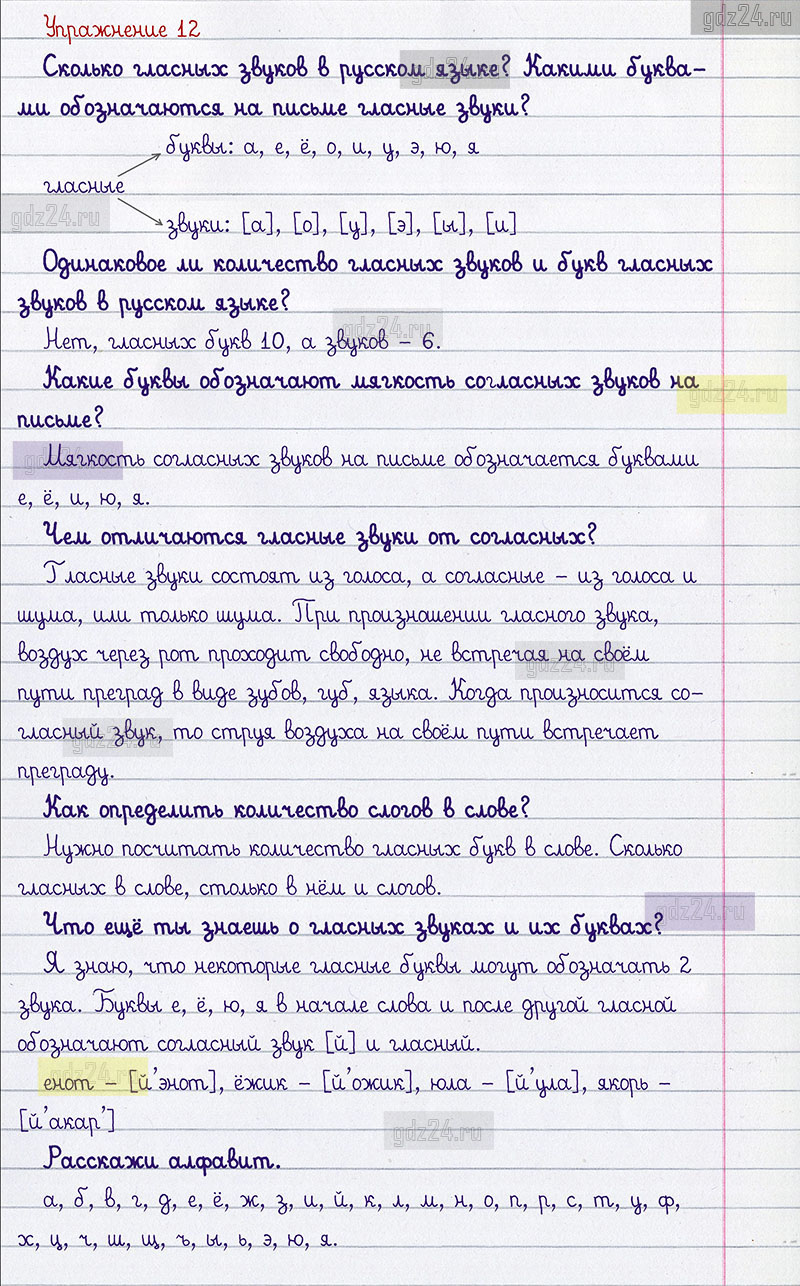 gdz24.ru
Упражнение 12
Сколько гласных звуков в русском языке? Какими буква-
ми обозначаются на письме гласные звуки?
буквы: а, е, ё, о, и, у, э, ю, я
гласные
звуки: [а], [о], [у], [э], [ы], [и]
gdz24.ru
Одинаковое ли количество гласных звуков и букв гласных
звуков в русском языке?
Нет, гласных букв 10, а звуков – 6.
gdz24.ru
Какие буквы обозначают мягкость согласных звуков на
письме?
gdz24.ru
Мягкость согласных звуков на письме обозначается буквами
е, ё, и, ю, я.
Чем отличаются гласные звуки от согласных?
Гласные звуки состоят из голоса, а согласные – из голоса и
шума, или только шума. При произношении гласного звука,
воздух через рот проходит свободно, не встречая на своём
gdz24.ru
пути преград в виде зубов, губ, языка. Когда произносится со-
гласный звук, то струя воздуха на своём пути встречает
gdz24.ru
преграду.
Как определить количество слогов в слове?
Нужно посчитать количество гласных букв в слове. Сколько
гласных в слове, столько в нём и слогов.
gdz24.ru
Что ещё ты знаешь о гласных звуках и их буквах?
Я знаю, что некоторые гласные буквы могут обозначать 2
звука. Буквы е, ё, ю, я в начале слова и после другой гласной
обозначают согласный звук [й] и гласный.
енот – [й'энот], ёжик – [й'ожик], юла – [й'ула], якорь –
[й'акар']
gdz24.ru
Расскажи алфавит.
а, б, в, г, д, е, ё, ж, з, и, й, к, л, м, н, о, п, р, с, т, у, ф,
х, ц, ч, ш, щ, ъ, ы, ь, э, ю, я.